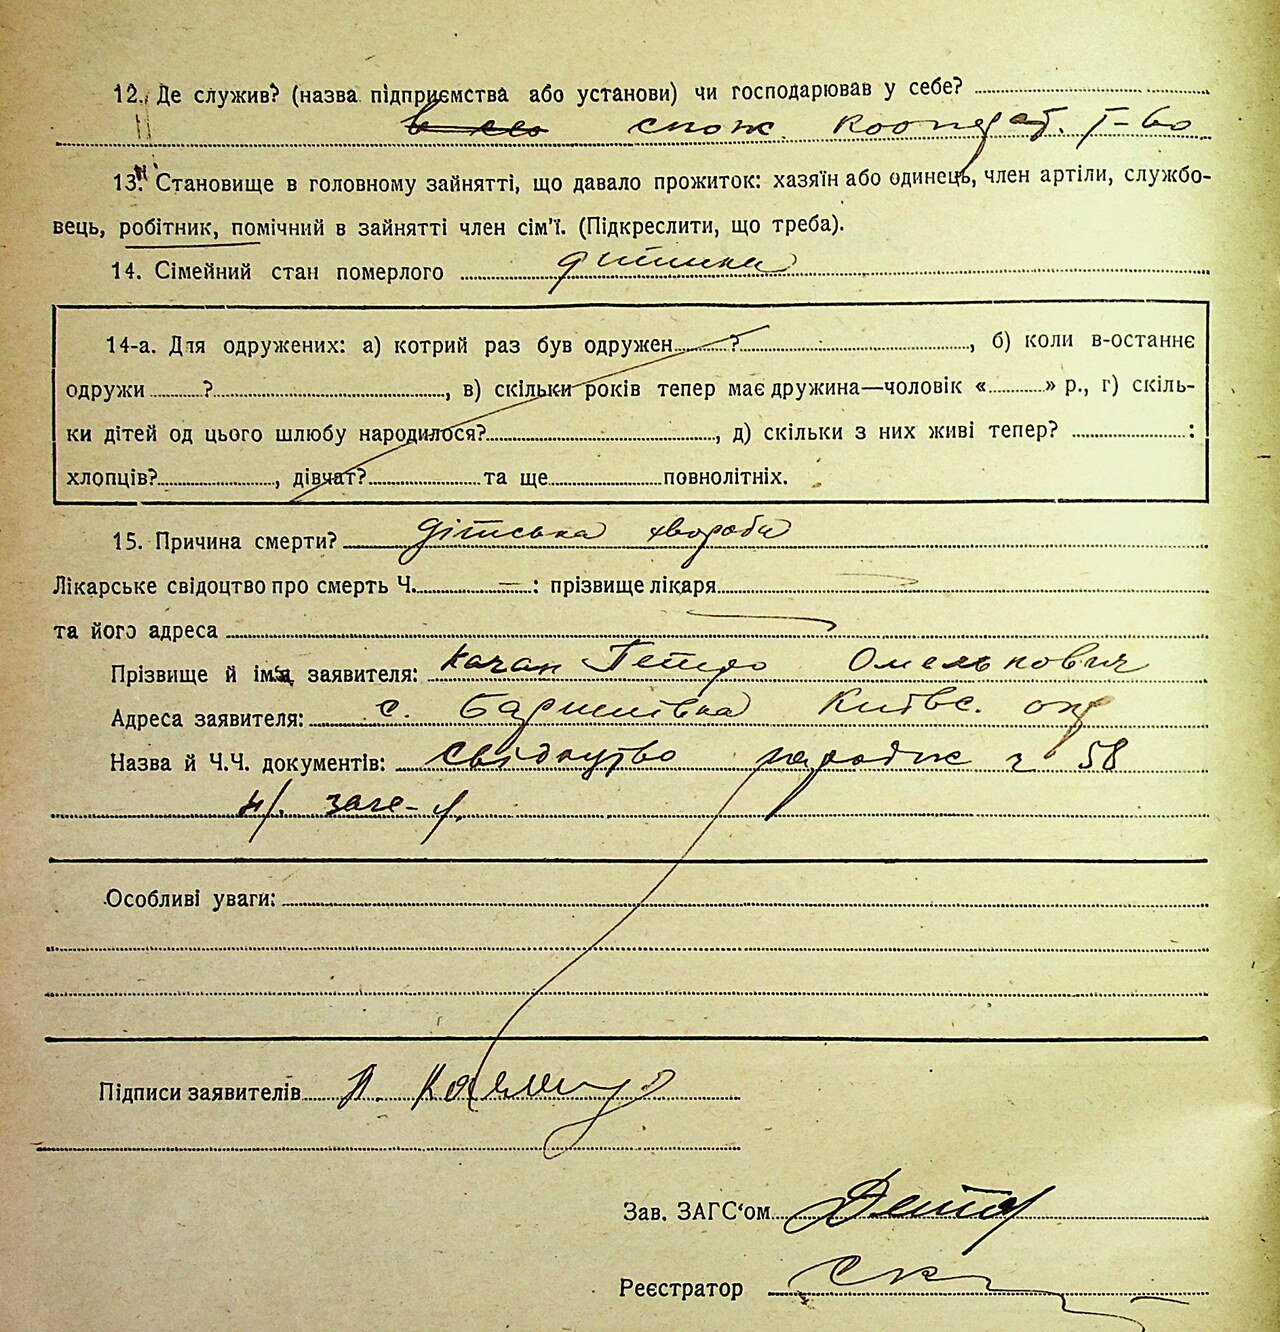 12. Де служив? (назва підприємства або установи) чи господарював у себе?
спож. кооперат. т-во
13. Становище в головному зайнятті, що давало прожиток: хазяїн або одинець, член артіли, службо-
вець, робітник, помічний в зайнятті член сім'ї. (Підкреслити, що треба).
14. Сімейний стан померлого дитина
14-а. Для одружених: а) котрий раз був одружен ?, б) коли в-останнє
одружи ?, в) скільки років тепер має дружина—чоловік « » р., г) скіль-
ки дітей од цього шлюбу народилося?, д) скільки з них живі тепер? :
хлопців?, дівчат? та ще повнолітніх.
15. Причина смерти? дітська хвороба
Лікарське свідоцтво про смерть Ч. — : прізвище лікаря
та його адреса
Прізвище й ім'я заявителя: Качан Петро Омелькович
Адреса заявителя: с. Баришівка Київс. окр
Назва й Ч.Ч. документів: свідоцтво народж ч 58
Особливі уваги:
Підписи заявителів П.
Зав. ЗАГС'ом
Реєстратор